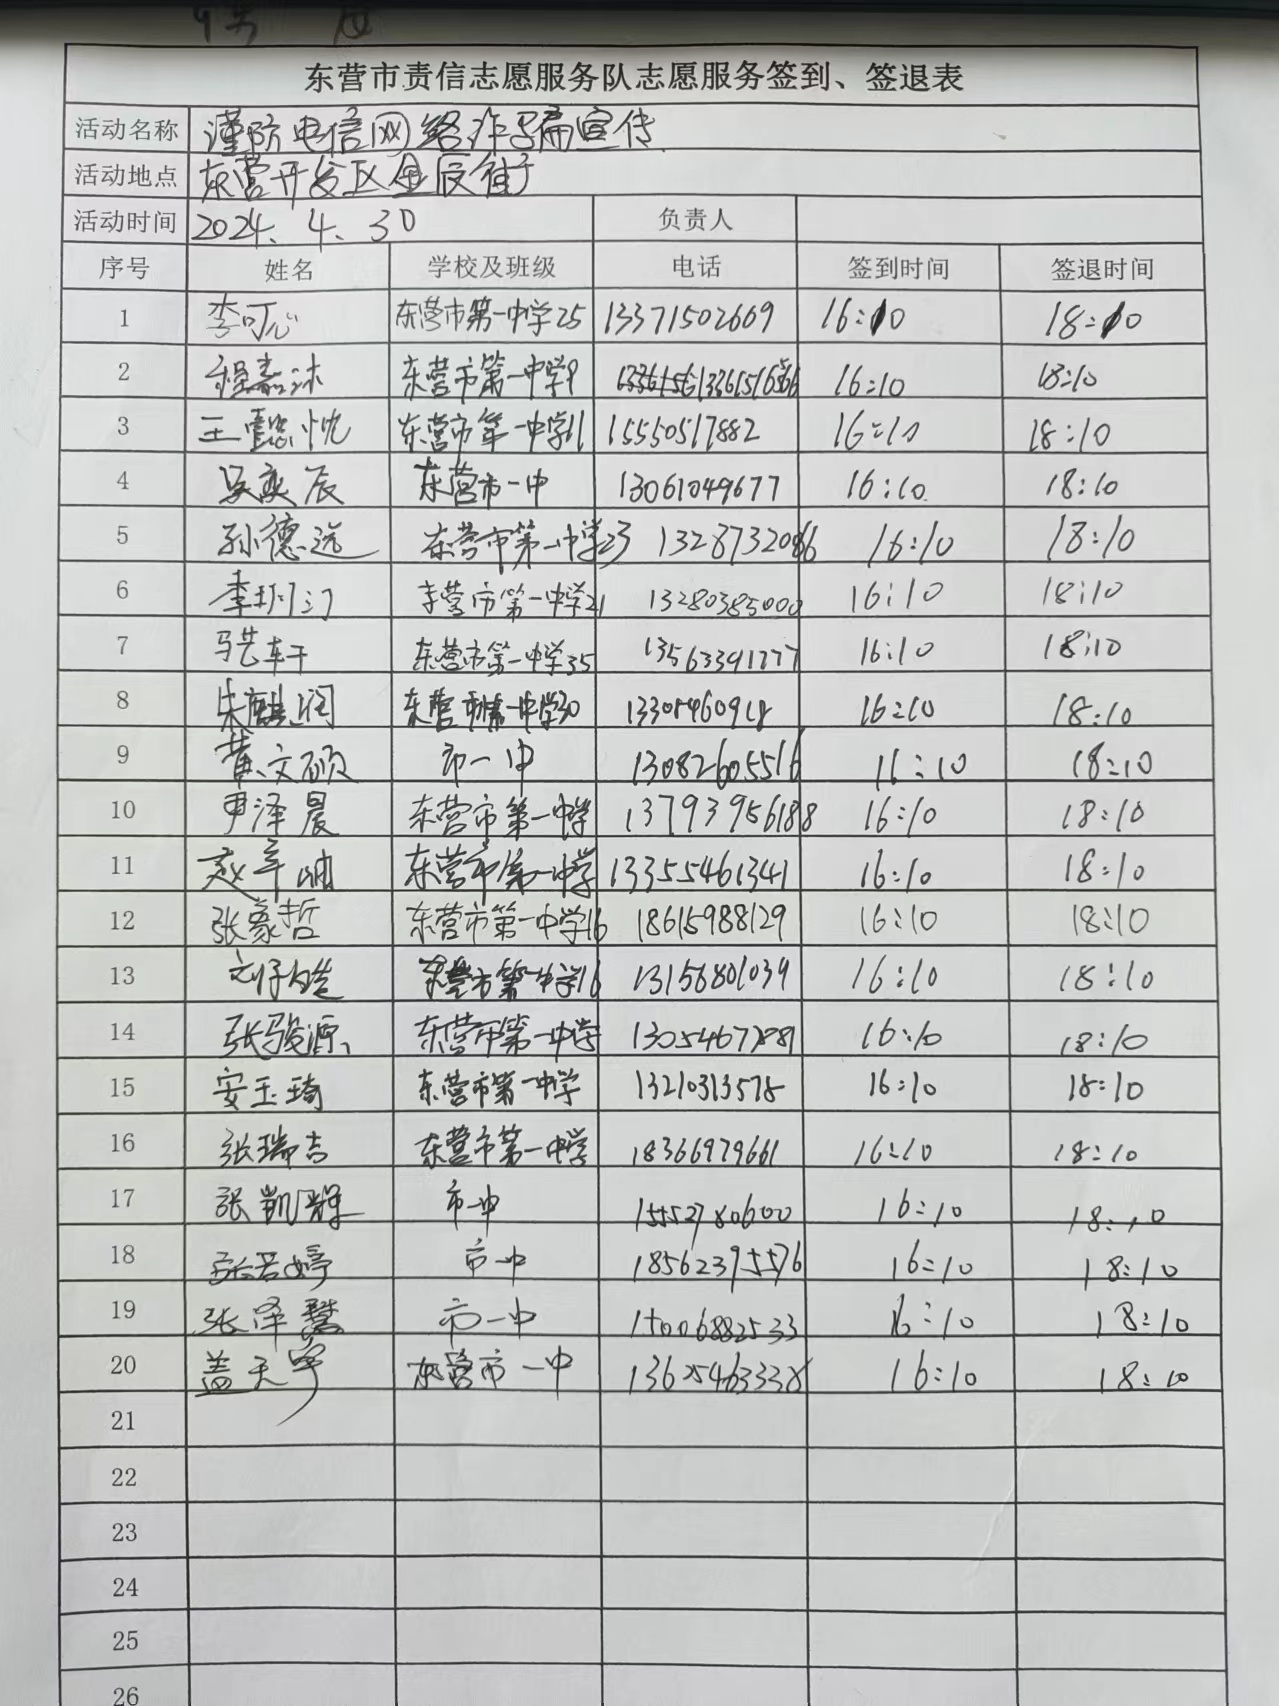 东营市责信志愿服务队志愿服务签到、签退表
活动名称 谨防电信网络诈骗宣传
活动地点 东营开发区金辰街
活动时间 2024.4.30 负责人
序号 姓名 学校及班级 电话 签到时间 签退时间
1 李可心 东营市第一中学25 13371502669 16:10 18:10
2 程嘉沐 东营市第一中学9 16:10 18:10
3 王懿忱 东营市第一中学11 15550517882 16:10 18:10
4 吴奕辰 东营市一中 13061049677 16:10 18:10
5 孙德远 东营市第一中学23 16:10 18:10
6 李玥 东营市第一中学21 13280385000 16:10 18:10
7 马艺轩 东营市第一中学35 13563391777 16:10 18:10
8 朱麒润 东营市第一中学30 16:10 18:10
9 黄文硕 市一中 13082605516 16:10 18:10
10 尹泽晨 东营市第一中学 13793956188 16:10 18:10
11 赵 东营市第一中学 13355461341 16:10 18:10
12 张豪哲 东营市第一中学16 18615988129 16:10 18:10
13 东营市第一中学16 13156801039 16:10 18:10
14 张骏源 东营市第一中学 16:10 18:10
15 安玉琦 东营市第一中学 13210313578 16:10 18:10
16 张瑞吉 东营市第一中学 18366979661 16:10 18:10
17 张凯辉 市一中 15552780600 16:10 18:10
18 张若婷 市一中 18562395576 16:10 18:10
19 张泽慧 市一中 15006882533 16:10 18:10
20 盖天宇 东营市一中 13625463338 16:10 18:10
21
22
23
24
25
26